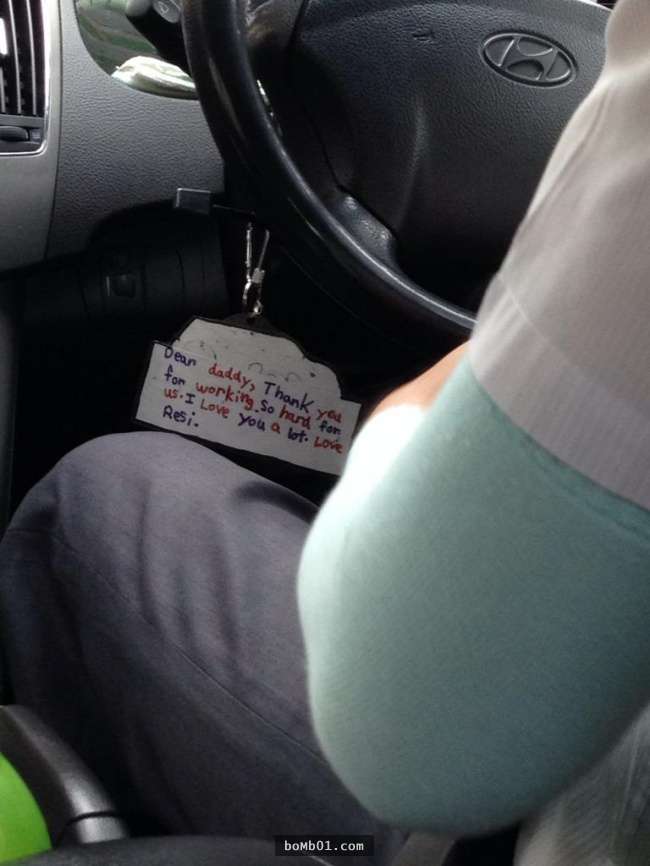 Dear daddy, Thank you
for working so hard for
us. I Love you a lot. Love
Resi.
boMb01.com